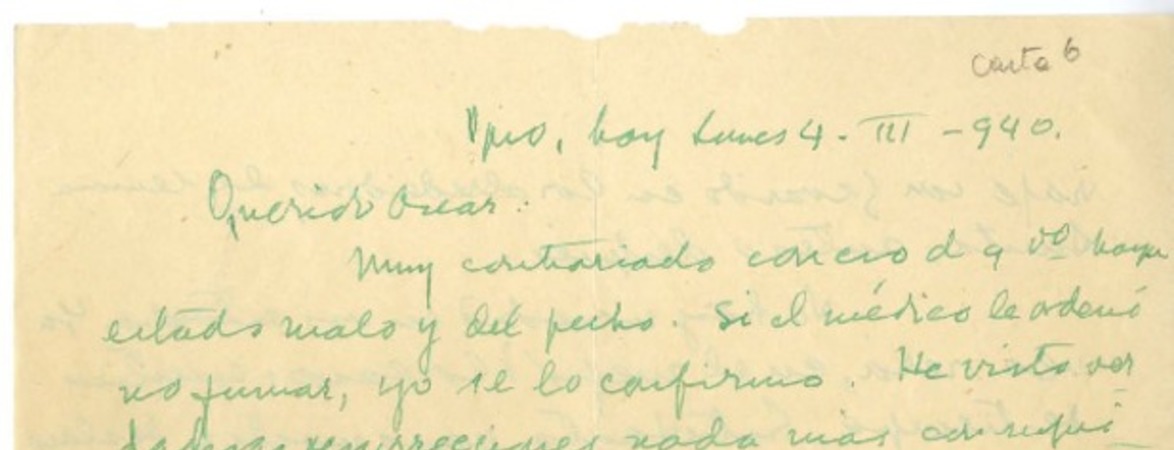 Carta 6
Vpso, hoy Lunes 4 - III - 940.
Querido Oscar:
Muy contrariado con eso d q Vd haya
estado malo y del pecho. Si el médico le ordenó
no fumar, yo se lo confirmo. He visto ver
daderas resurrecciones nada más con supri